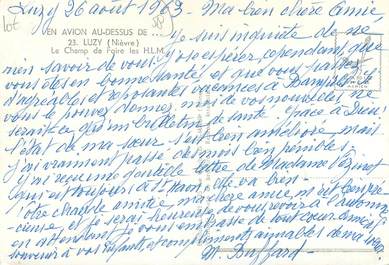 Luzy 26 août 1963 - Ma bien chère Amie
lot
EN AVION AU-DESSUS DE ...
23. LUZY (Nièvre)
Le Champ de Foire les H.L.M.
je suis inquiète de ne
rien savoir de vous. J'ose espérer cependant que
vous êtes en bonne santé et que vous passez
d'agréables et reposantes vacances à
vous le pouvez donnez moi de vos nouvelles, ne
serait-ce qu'un bulletin de santé. Grâce à Dieu
l'état de ma sœur s'est bien amélioré mais
j'ai vraiment passé des mois bien pénibles.
J'ai reçu une gentille lettre de Madame
qui est toujours à St Haon. Elle va bien -
Votre chaude amitié ma chère amie m'est
et je serai heureuse de vous revoir à l'automne
en attendant je vous embrasse de tout cœur. Amical
souvenir à vos enfants et compliments aimables de ma sœur,
M. Buffard